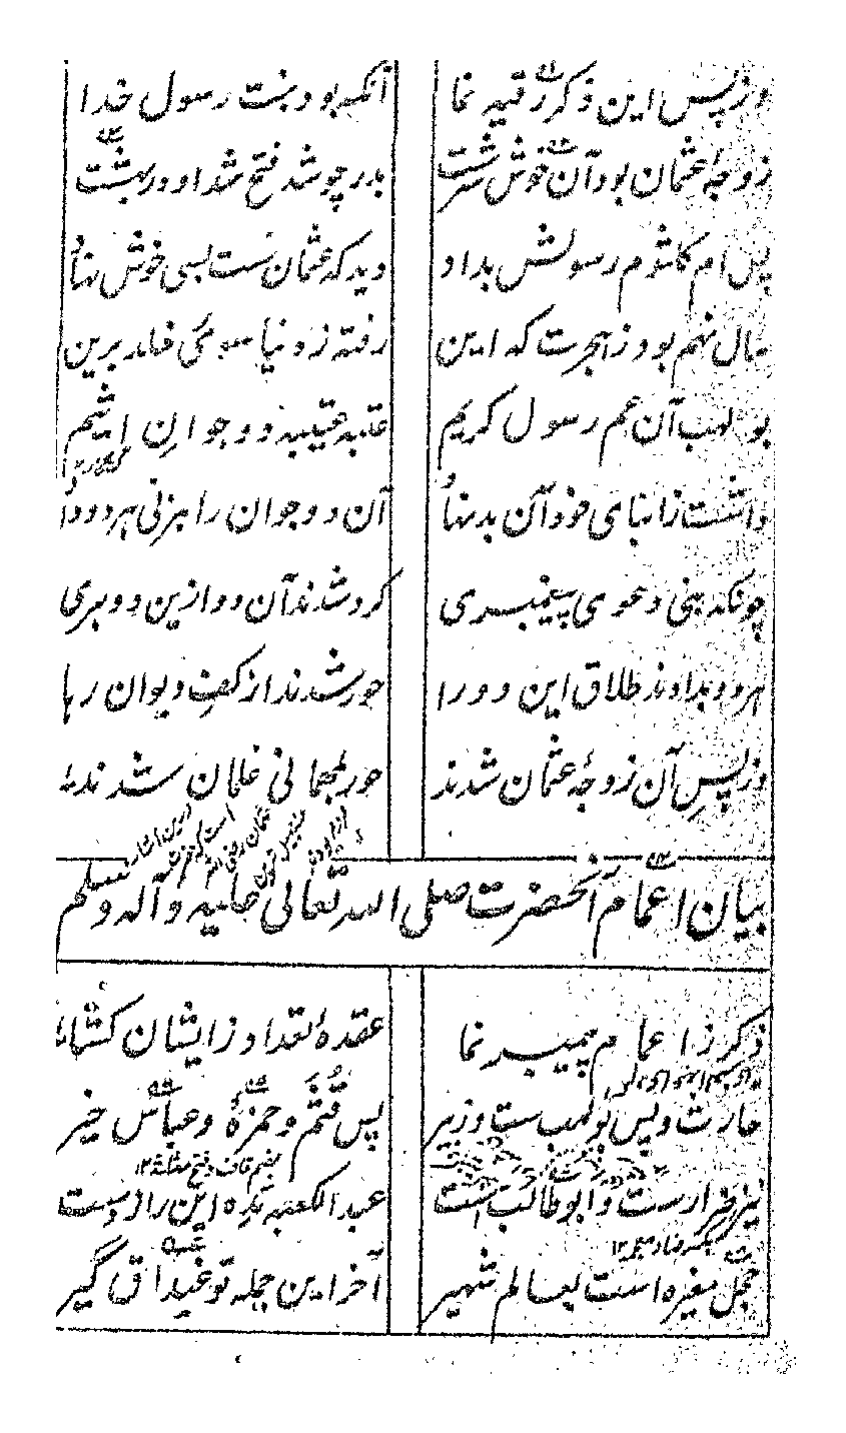 وز پس این ذکر رقیه نما آنکه بود بنت رسول خدا
زوجۀ عثمان بود آن خوش سرشت بدر چو شد فتح شد او در بهشت
پس ام کلثوم رسولش بداد دید که عثمان ست بسی خوش نهاد
سال نهم بود ز هجرت که این رفته ز دنیا سوی خلد برین
بو لهب آن عم رسول کریم عتبه عتیبه دو جوان اثیم
داشت ز ابنای خود آن بد نهاد آن دو جوان را بزنی هر دو داد
چونکه نبی دعوی پیغمبری کرد شدند آن دو ازین دو بری
هر دو بدادند طلاق این دو را حور شدند از کف دیوان رها
وز پس آن زوجۀ عثمان شدند حور لجمانی غلمان شدند
بیان اعمام آنحضرت صلی الله تعالی علیه وآله وسلم
ذکر ز اعمام پیمبر نما عقدۀ تعداد ز ایشان کشا
حارث و پس بولهب ست و زبیر پس قثم و حمزۀ و عباس خیر
نیز ضرارست و ابوطالب است عبد الکعبه بده این راز دست
حجل مغیره است بعالم شهیر آخر این جمله تو غیداق گیر